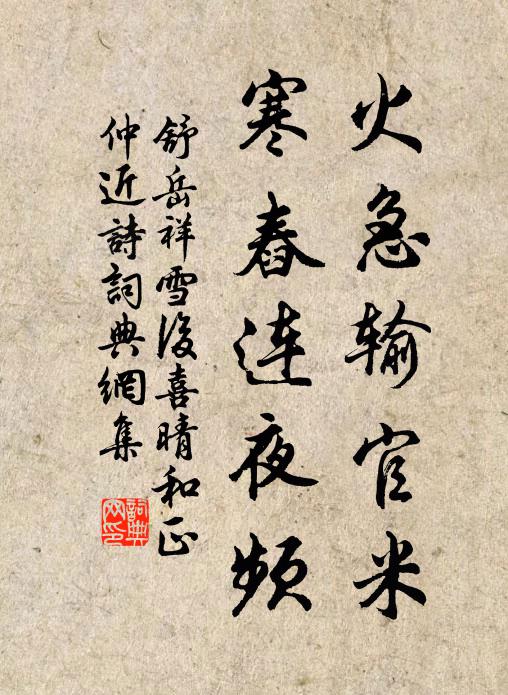 火急输官米
寒舂连夜频
舒岳祥雪後喜晴和正
仲近詩詞典網集
詞典
网印